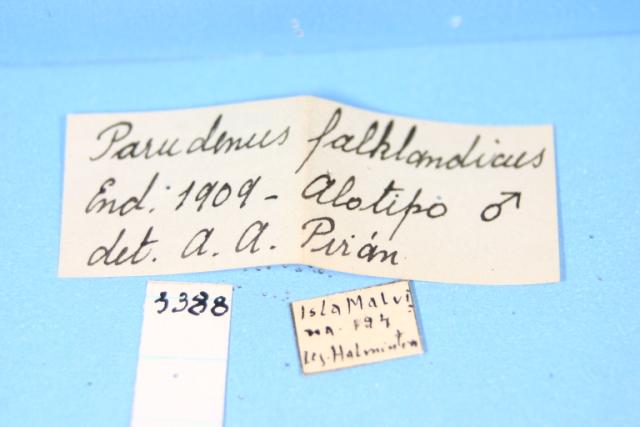 Parudenus falklandicus
End. 1909 - Alotipo ♂
det. A. A. Pirán
3388
Isla Malvi
na.
Leg.